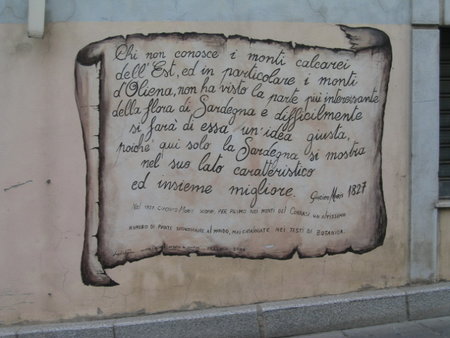 Chi non conosce i monti calcarei
dell'Est, ed in particolare i monti
d'Oliena, non ha visto la parte più interessante
della flora di Sardegna e difficilmente
si farà di essa un'idea giusta,
poichè qui solo la Sardegna si mostra
nel suo lato caratteristico
ed insieme migliore.
Giacinto Moris 1827
Nel 1827 Giacinto Moris scoprì per primo nei monti del Corrasi un altissimo
numero di piante sconosciute al mondo, mai catalogate nei testi di botanica.